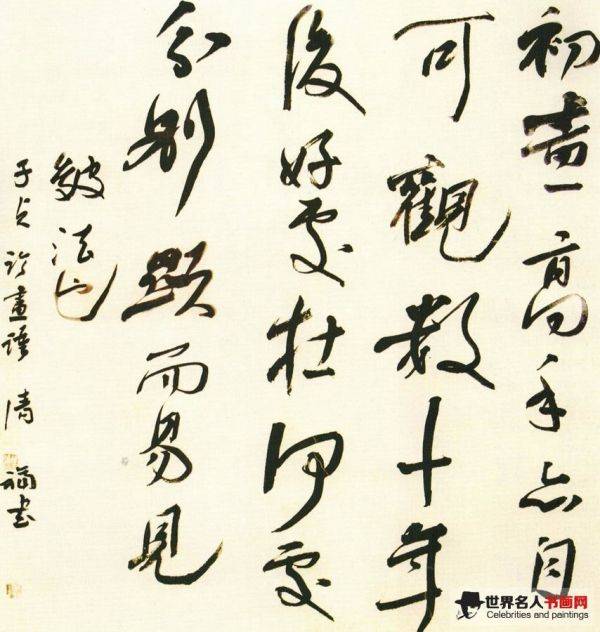 初畫高手亦自
可觀數十年
後好處在何處
分別顯而易見
皴法也
子 論畫語 清福書
世界名人书画网
Celebrities and paintings